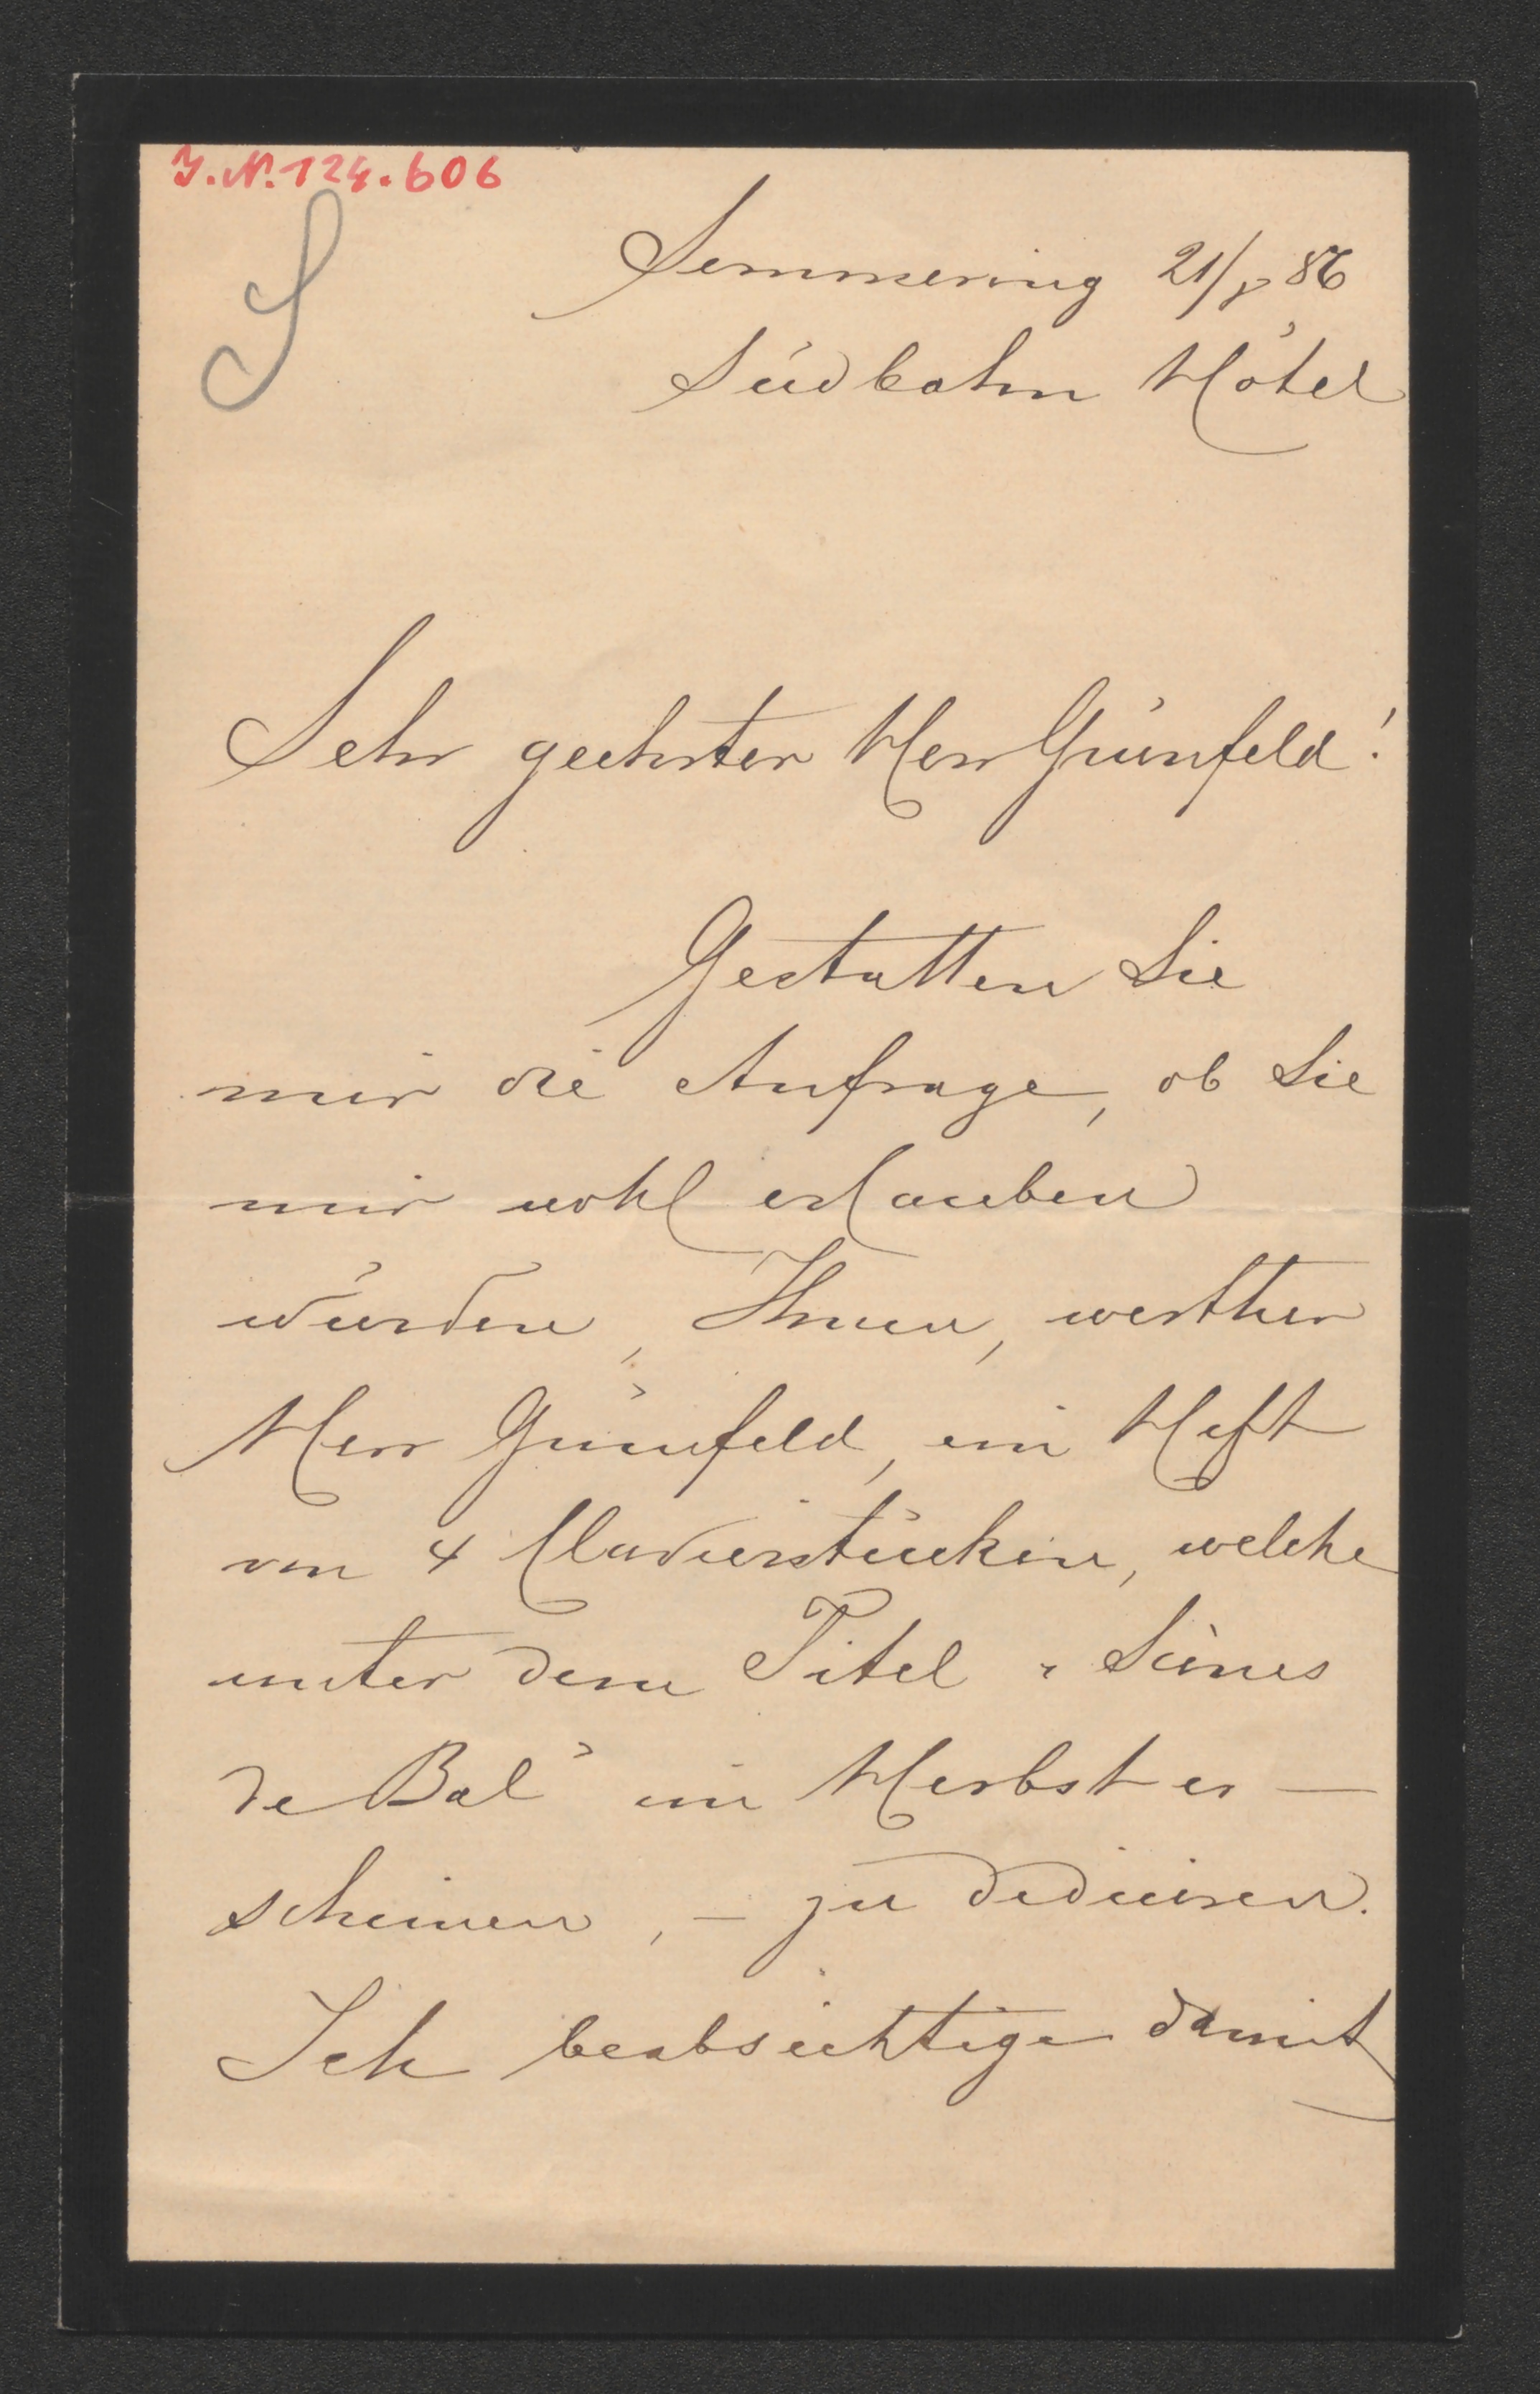 J.N. 124.606
S
Semmering 21/8 86
Südbahn Hôtel
Sehr geehrter Herr Grünfeld!
Gestatten Sie
mir die Anfrage, ob Sie
mir wohl erlauben
würden, Ihnen, werther
Herr Grünfeld, ein Heft
von 4 Clavierstücken, welche
unter dem Titel „Scènes
de Bal" im Herbst er—
scheinen, — zu dediciren.
Ich beabsichtige damit